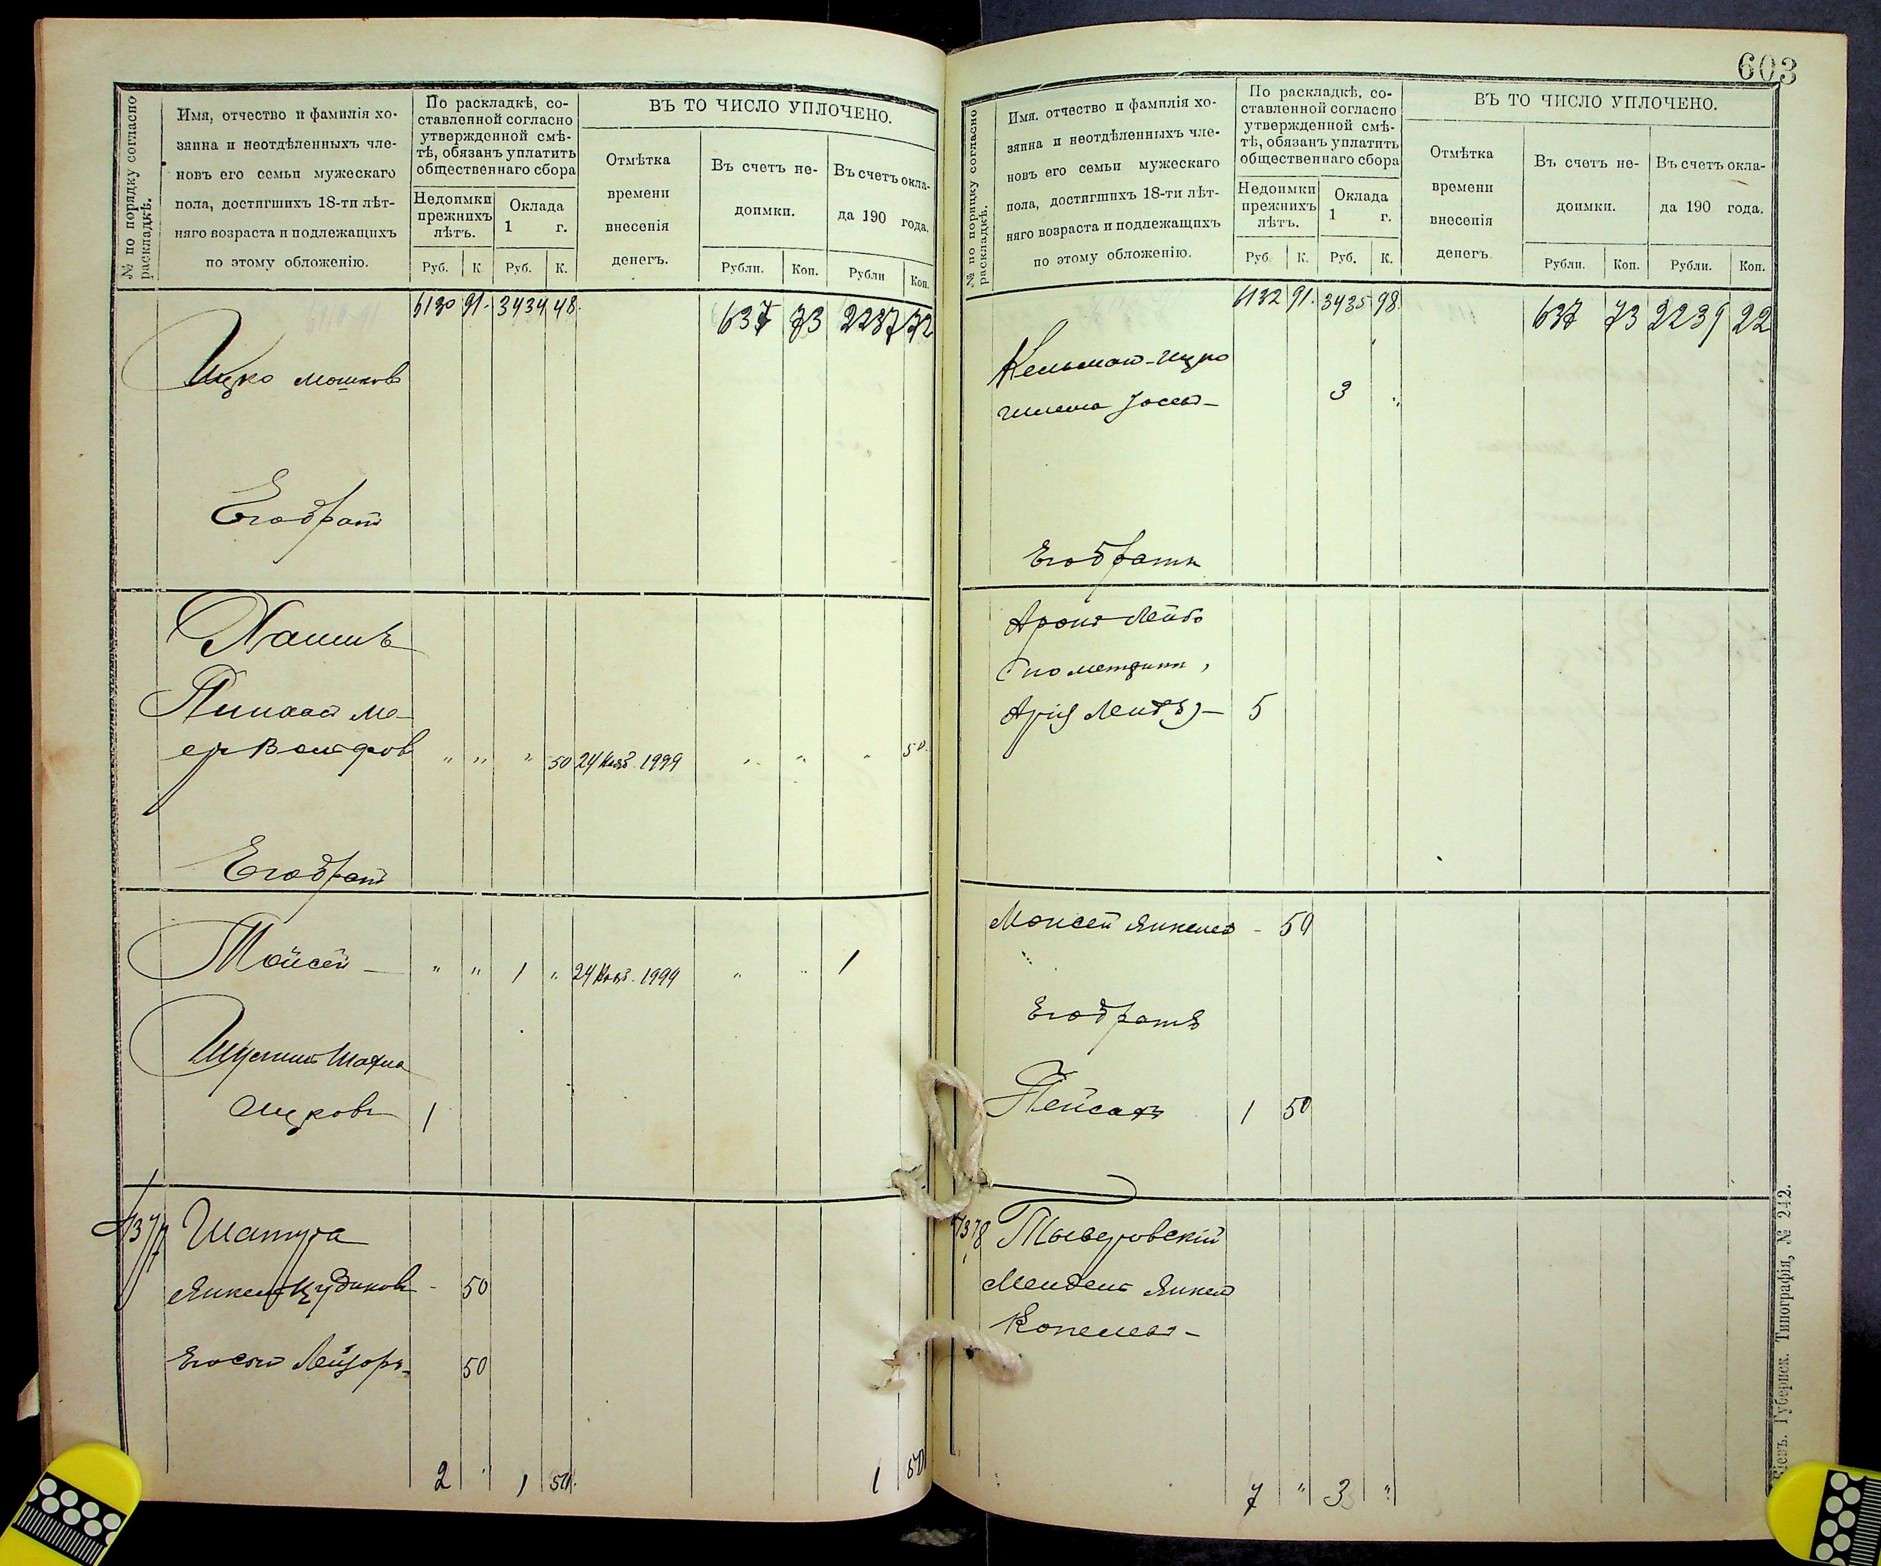 № по порядку согласно раскладкѣ.
Имя, отчество и фамилія хо-
зяина и неотдѣленныхъ чле-
новъ его семьи мужескаго
пола, достигшихъ 18-ти лѣт-
няго возраста и подлежащихъ
по этому обложенію.
По раскладкѣ, со-
ставленной согласно
утвержденной смѣ-
тѣ, обязанъ уплатить
общественнаго сбора
Недоимки
прежнихъ
лѣтъ.
Оклада
1 г.
Руб. К. Руб. К.
ВЪ ТО ЧИСЛО УПЛОЧЕНО.
Отмѣтка
времени
внесенія
денегъ.
Въ счетъ не-
доимки.
Въ счетъ окла-
да 190 года.
Рубли. Коп. Рубли Коп.
6130 91. 3434 48. 637 73 2237 72
Ицко Мошковъ
Его братъ
Хаимъ
Пинхасъ Ме-
еръ Вольфовъ " " " 50 24 Нояб. 1999 " " " 50.
Его братъ
Мойсей — " " 1 " 24 Нояб. 1999 " " 1
Ицковъ 1
1377 Шатура
Янкель 50
Его сынъ Лейзоръ 50
2 " 1 50. 1 50
603
№ по порядку согласно раскладкѣ.
Имя, отчество и фамилія хо-
зяина и неотдѣленныхъ чле-
новъ его семьи мужескаго
пола, достигшихъ 18-ти лѣт-
няго возраста и подлежащихъ
по этому обложенію.
По раскладкѣ, со-
ставленной согласно
утвержденной смѣ-
тѣ, обязанъ уплатить
общественнаго сбора
Недоимки
прежнихъ
лѣтъ.
Оклада
1 г.
Руб. К. Руб. К.
ВЪ ТО ЧИСЛО УПЛОЧЕНО.
Отмѣтка
времени
внесенія
денегъ
Въ счетъ не-
доимки.
Въ счетъ окла-
да 190 года.
Рубли. Коп. Рубли. Коп.
6132 91. 3435 98. 637 73 2239 22
Кельманъ-Ицко
Шлема Іосевъ — 3 "
Его братъ
Аронъ Лейбъ
(по метрики,
Арія Лейбъ) — 5
Моисей Янкель - 50
Его братъ
Пейсахъ 1 50
1378 Тывровскій
Мендель Янкел
Копелевъ —
7 " 3 "
Кіевъ. Губернск. Типографія, № 242.